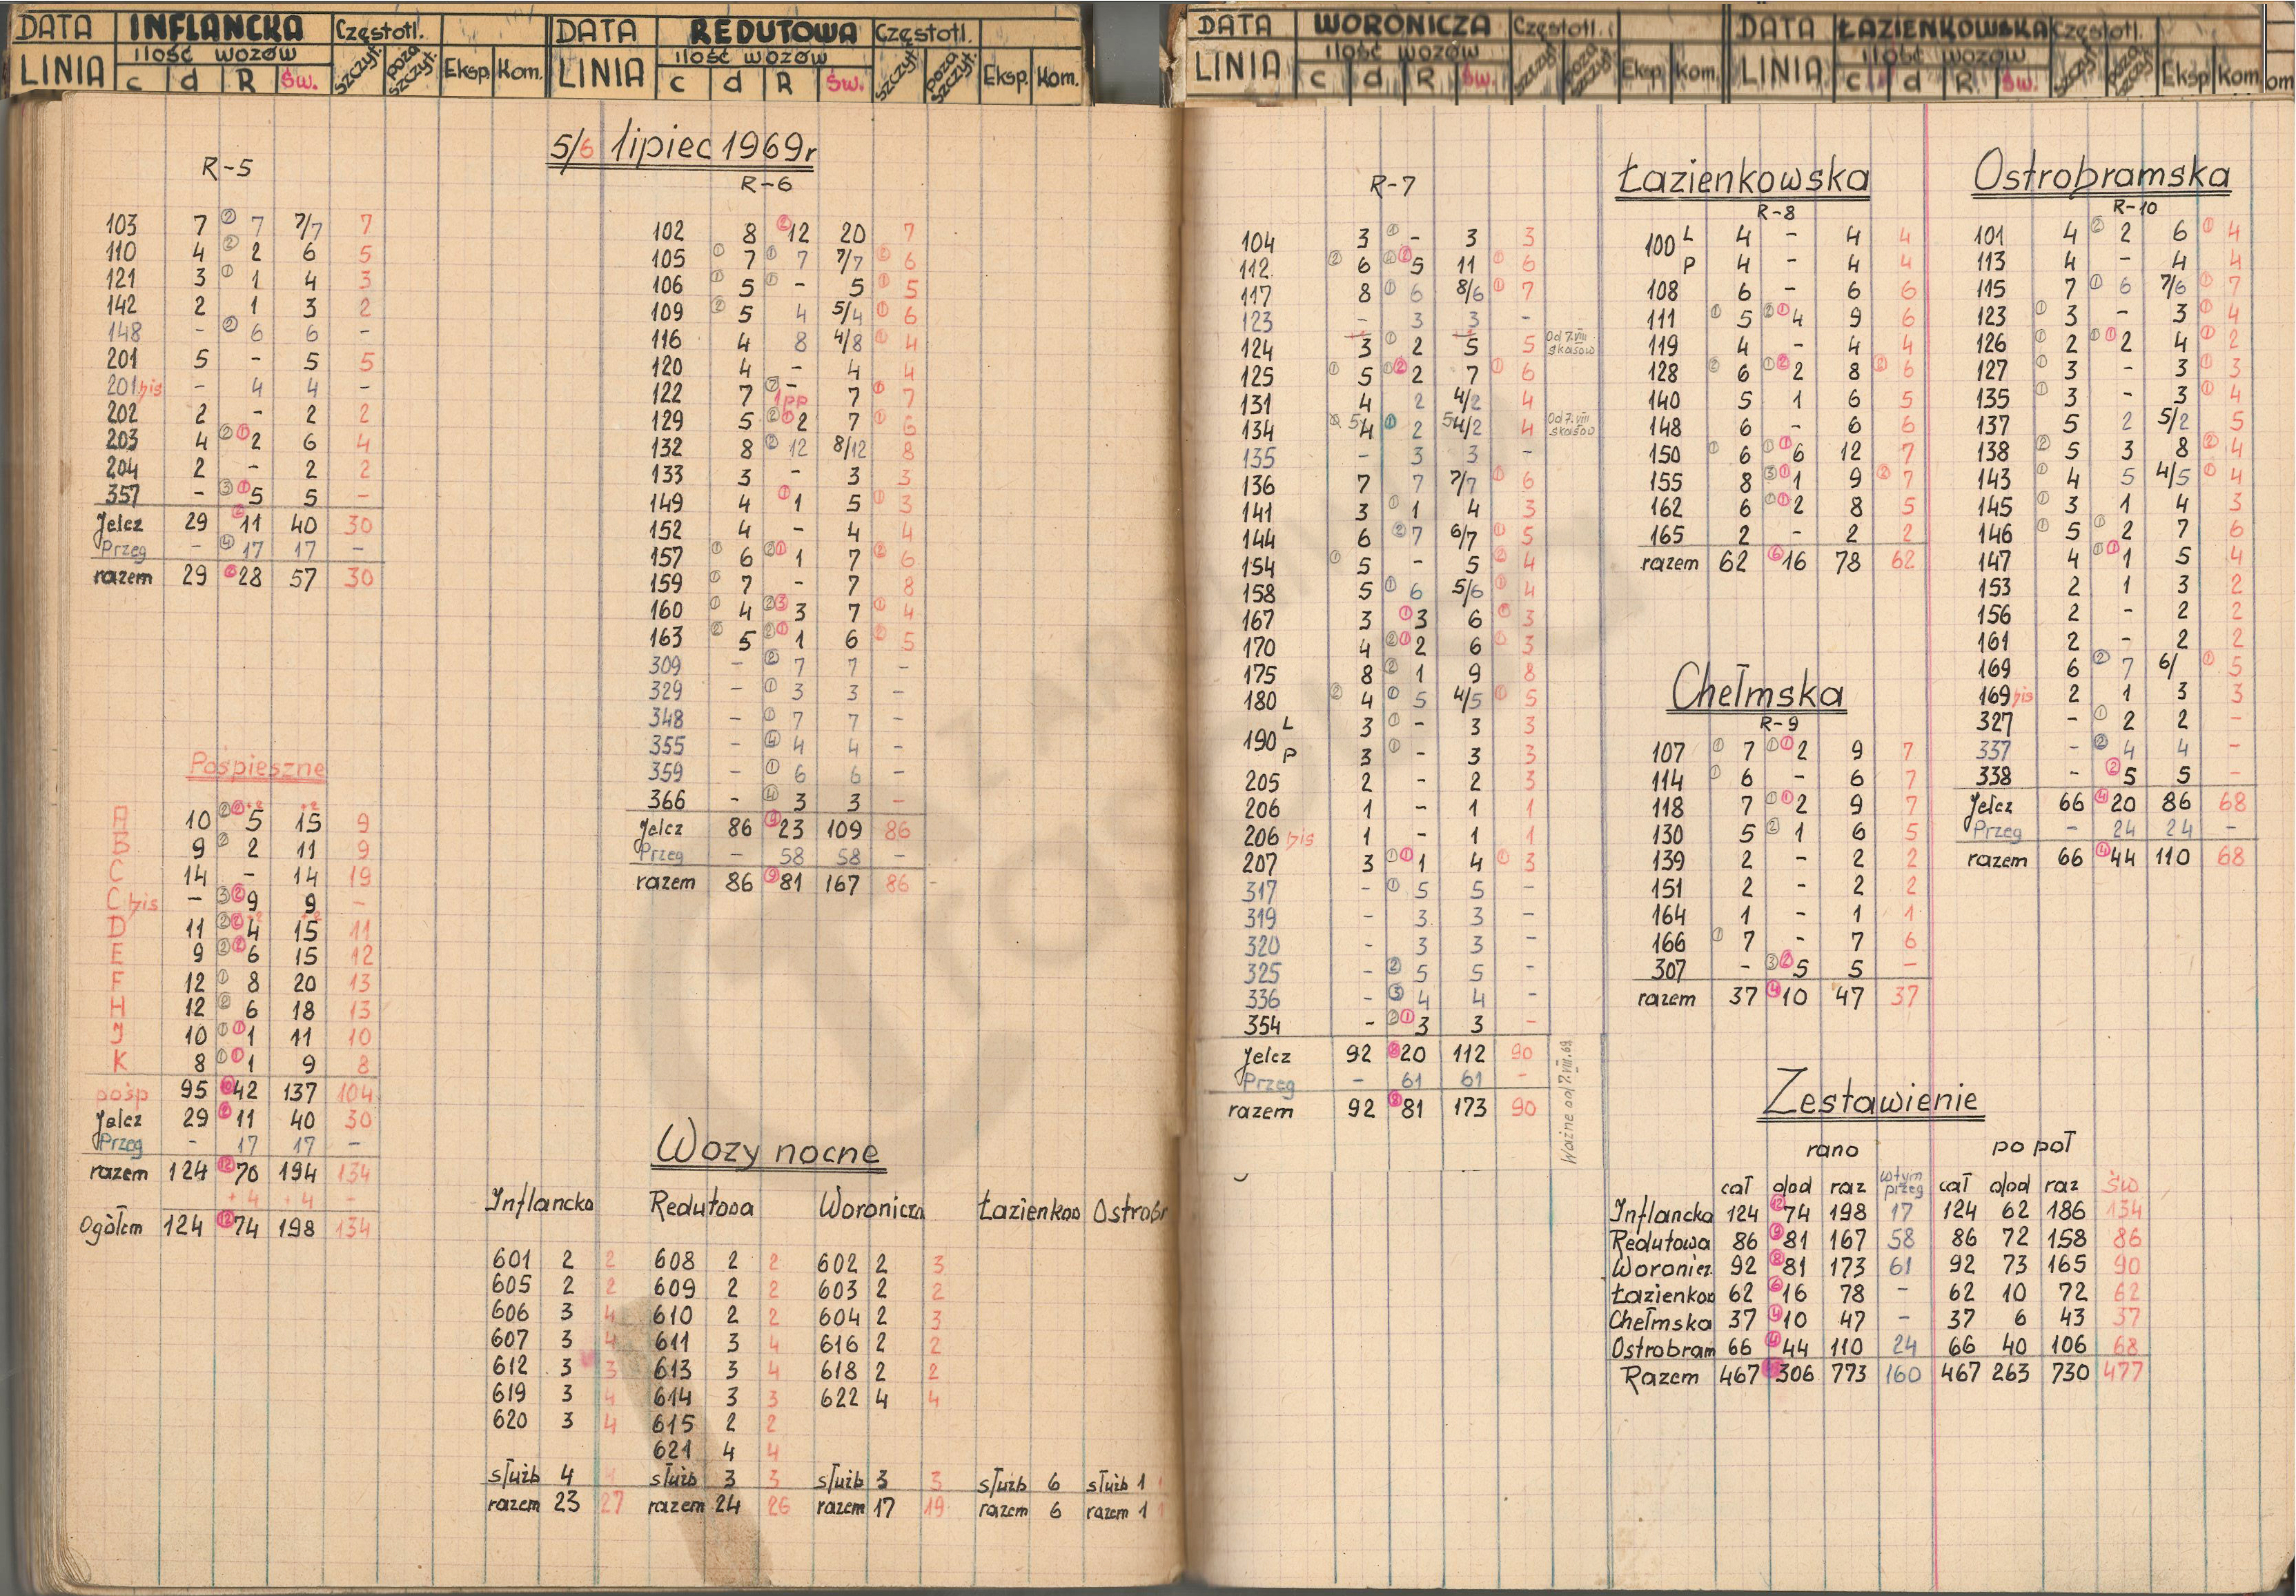 DATA INFLANCKA Częstotl.
LINIA ilość wozów szczyt. poza szczyt. Eksp. Kom.
c d R Św.
DATA REDUTOWA Częstotl.
LINIA ilość wozów szczyt. poza szczyt. Eksp. Kom.
c d R Św.
DATA WORONICZA Częstotl.
LINIA ilość wozów szczyt. poza szczyt. Eksp. Kom.
c d R Św.
DATA ŁAZIENKOWSKA Częstotl.
LINIA ilość wozów szczyt. poza szczyt. Eksp Kom om
c d R Św.
5/6 lipiec 1969r
R-5
103 7 ② 7 7/7 7
110 4 ② 2 6 5
121 3 ① 1 4 3
142 2 1 3 2
148 - ② 6 6 -
201 5 - 5 5
201 bis - 4 4 -
202 2 - 2 2
203 4 ② ① 2 6 4
204 2 - 2 2
357 - ③ ① 5 5 -
Jelcz 29 ② 11 40 30
Przeg - ④ 17 17 -
razem 29 ② 28 57 30
Pośpieszne
A 10 ② ② 5 +2 15 +2 9
B 9 ② 2 11 9
C 14 - 14 19
C bis - ③ ② 9 9 -
D 11 ② ② 4 +2 15 +2 11
E 9 ② ② 6 15 12
F 12 ① 8 20 13
H 12 ② 6 18 13
J 10 ① ① 1 11 10
K 8 ① ① 1 9 8
pośp 95 ⑩ 42 137 104
Jelcz 29 ② 11 40 30
Przeg - 17 17 -
razem 124 ⑫ 70 194 134
+4 +4 -
Ogółem 124 ⑫ 74 198 134
R-6
102 8 ② 12 20 7
105 ① 7 ① 7 7/7 ② 6
106 ① 5 ① - 5 ① 5
109 ② 5 4 5/4 ① 6
116 4 8 4/8 ① 4
120 4 - 4 4
122 7 ② - 7 ① 7
1pp
129 5 ② ① 2 7 ① 6
132 8 ② 12 8/12 8
133 3 - 3 3
149 4 ① 1 5 ① 3
152 4 - 4 4
157 ① 6 ② ① 1 7 ② 6
159 ① 7 - 7 8
160 ① 4 ② ③ 3 7 ① 4
163 ② 5 ② ① 1 6 ② 5
309 - ② 7 7 -
329 - ① 3 3 -
348 - ① 7 7 -
355 - ④ 4 4 -
359 - ① 6 6 -
366 - ④ 3 3 -
Jelcz 86 ⑨ 23 109 86
Przeg - 58 58 -
razem 86 ⑨ 81 167 86 -
Wozy nocne
Inflancka Redutowa Woronicza Łazienkow Ostrobr
601 2 2 608 2 2 602 2 3
605 2 2 609 2 2 603 2 2
606 3 4 610 2 2 604 2 3
607 3 4 611 3 4 616 2 2
612 3 3 613 3 4 618 2 2
619 3 4 614 3 3 622 4 4
620 3 4 615 2 2
621 4 4
służb 4 4 służb 3 3 służb 3 3 służb 6 służb 1
razem 23 27 razem 24 26 razem 17 19 razem 6 razem 1 1
R-7
104 3 ① - 3 3
112 ② 6 ② ② 5 11 ① 6
117 8 ① 6 8/6 ① 7
123 - 3 3 -
124 3 ① 2 5 5 Od 7.VIII skasow
125 ① 5 ① ② 2 7 ① 6
131 4 2 4/2 4
134 5 4 ① 2 5 4/2 4 Od 7.VIII skasow
135 - 3 3 -
136 7 7 7/7 ① 6
141 3 ① 1 4 3
144 6 ② 7 6/7 ① 5
154 ① 5 - 5 ② 4
158 5 ① 6 5/6 ① 4
167 3 ① 3 6 ① 3
170 4 ② ① 2 6 ① 3
175 8 ② 1 9 8
180 ② 4 ① 5 4/5 ① 5
190 L 3 ① - 3 3
P 3 ① - 3 3
205 2 - 2 3
206 1 - 1 1
206 bis 1 - 1 1
207 3 ① ① 1 4 ① 3
317 - ① 5 5 -
319 - 3 3 -
320 - 3 3 -
325 - ② 5 5 -
336 - ③ 4 4 -
354 - ② ① 3 3 -
Jelcz 92 ⑧ 20 112 90
Przeg - 61 61 -
razem 92 ⑧ 81 173 90
Ważne od 7.VIII.69
Łazienkowska
R-8
100 L 4 - 4 4
P 4 - 4 4
108 6 - 6 6
111 ① 5 ② ① 4 9 6
119 4 - 4 4
128 ② 6 ① ② 2 8 ② 6
140 5 1 6 5
148 6 - 6 6
150 ① 6 ① ① 6 12 7
155 8 ③ ① 1 9 ② 7
162 6 ① ① 2 8 5
165 2 - 2 2
razem 62 ⑥ 16 78 62
Chełmska
R-9
107 ① 7 ① ① 2 9 7
114 ① 6 - 6 7
118 7 ① ① 2 9 7
130 5 ② 1 6 5
139 2 - 2 2
151 2 - 2 2
164 1 - 1 1
166 ① 7 - 7 6
307 - ③ ② 5 5 -
razem 37 ④ 10 47 37
Ostrobramska
R-10
101 4 ② 2 6 ① 4
113 4 - 4 4
115 7 ① 6 7/6 ① 7
123 ① 3 - 3 ① 4
126 ① 2 ① ① 2 4 ① 2
127 ① 3 - 3 ① 3
135 ① 3 - 3 ① 4
137 5 2 5/2 5
138 ② 5 3 8 ② 4
143 ① 4 5 4/5 ① 4
145 ① 3 1 4 3
146 ① 5 ① 2 7 6
147 4 ① ① 1 5 4
153 2 1 3 2
156 2 - 2 2
161 2 - 2 2
169 6 ② 7 6/ ① 5
169 bis 2 1 3 3
327 - ① 2 2 -
337 - ② 4 4 -
338 - ② 5 5 -
Jelcz 66 ④ 20 86 68
Przeg - 24 24 -
razem 66 ④ 44 110 68
Zestawienie
rano po poł
cał dod raz wtym przeg cał dod raz Św
Inflancka 124 ⑫ 74 198 17 124 62 186 134
Redutowa 86 ⑨ 81 167 58 86 72 158 86
Woronicz 92 ⑧ 81 173 61 92 73 165 90
Łazienkow 62 ⑥ 16 78 - 62 10 72 62
Chełmska 37 ④ 10 47 - 37 6 43 37
Ostrobram 66 ④ 44 110 24 66 40 106 68
Razem 467 306 773 160 467 263 730 477